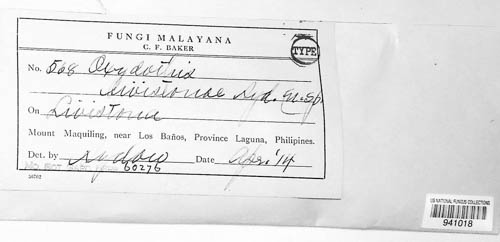 FUNGI MALAYANA
C. F. BAKER
TYPE
No. 568 Oxydothis
livistonae Syd. n. sp.
On Livistona
Mount Maquiling, near Los Baños, Province Laguna, Philipines.
Det. by Sydow Date Apr. '14
60276
US NATIONAL FUNGUS COLLECTIONS
941018